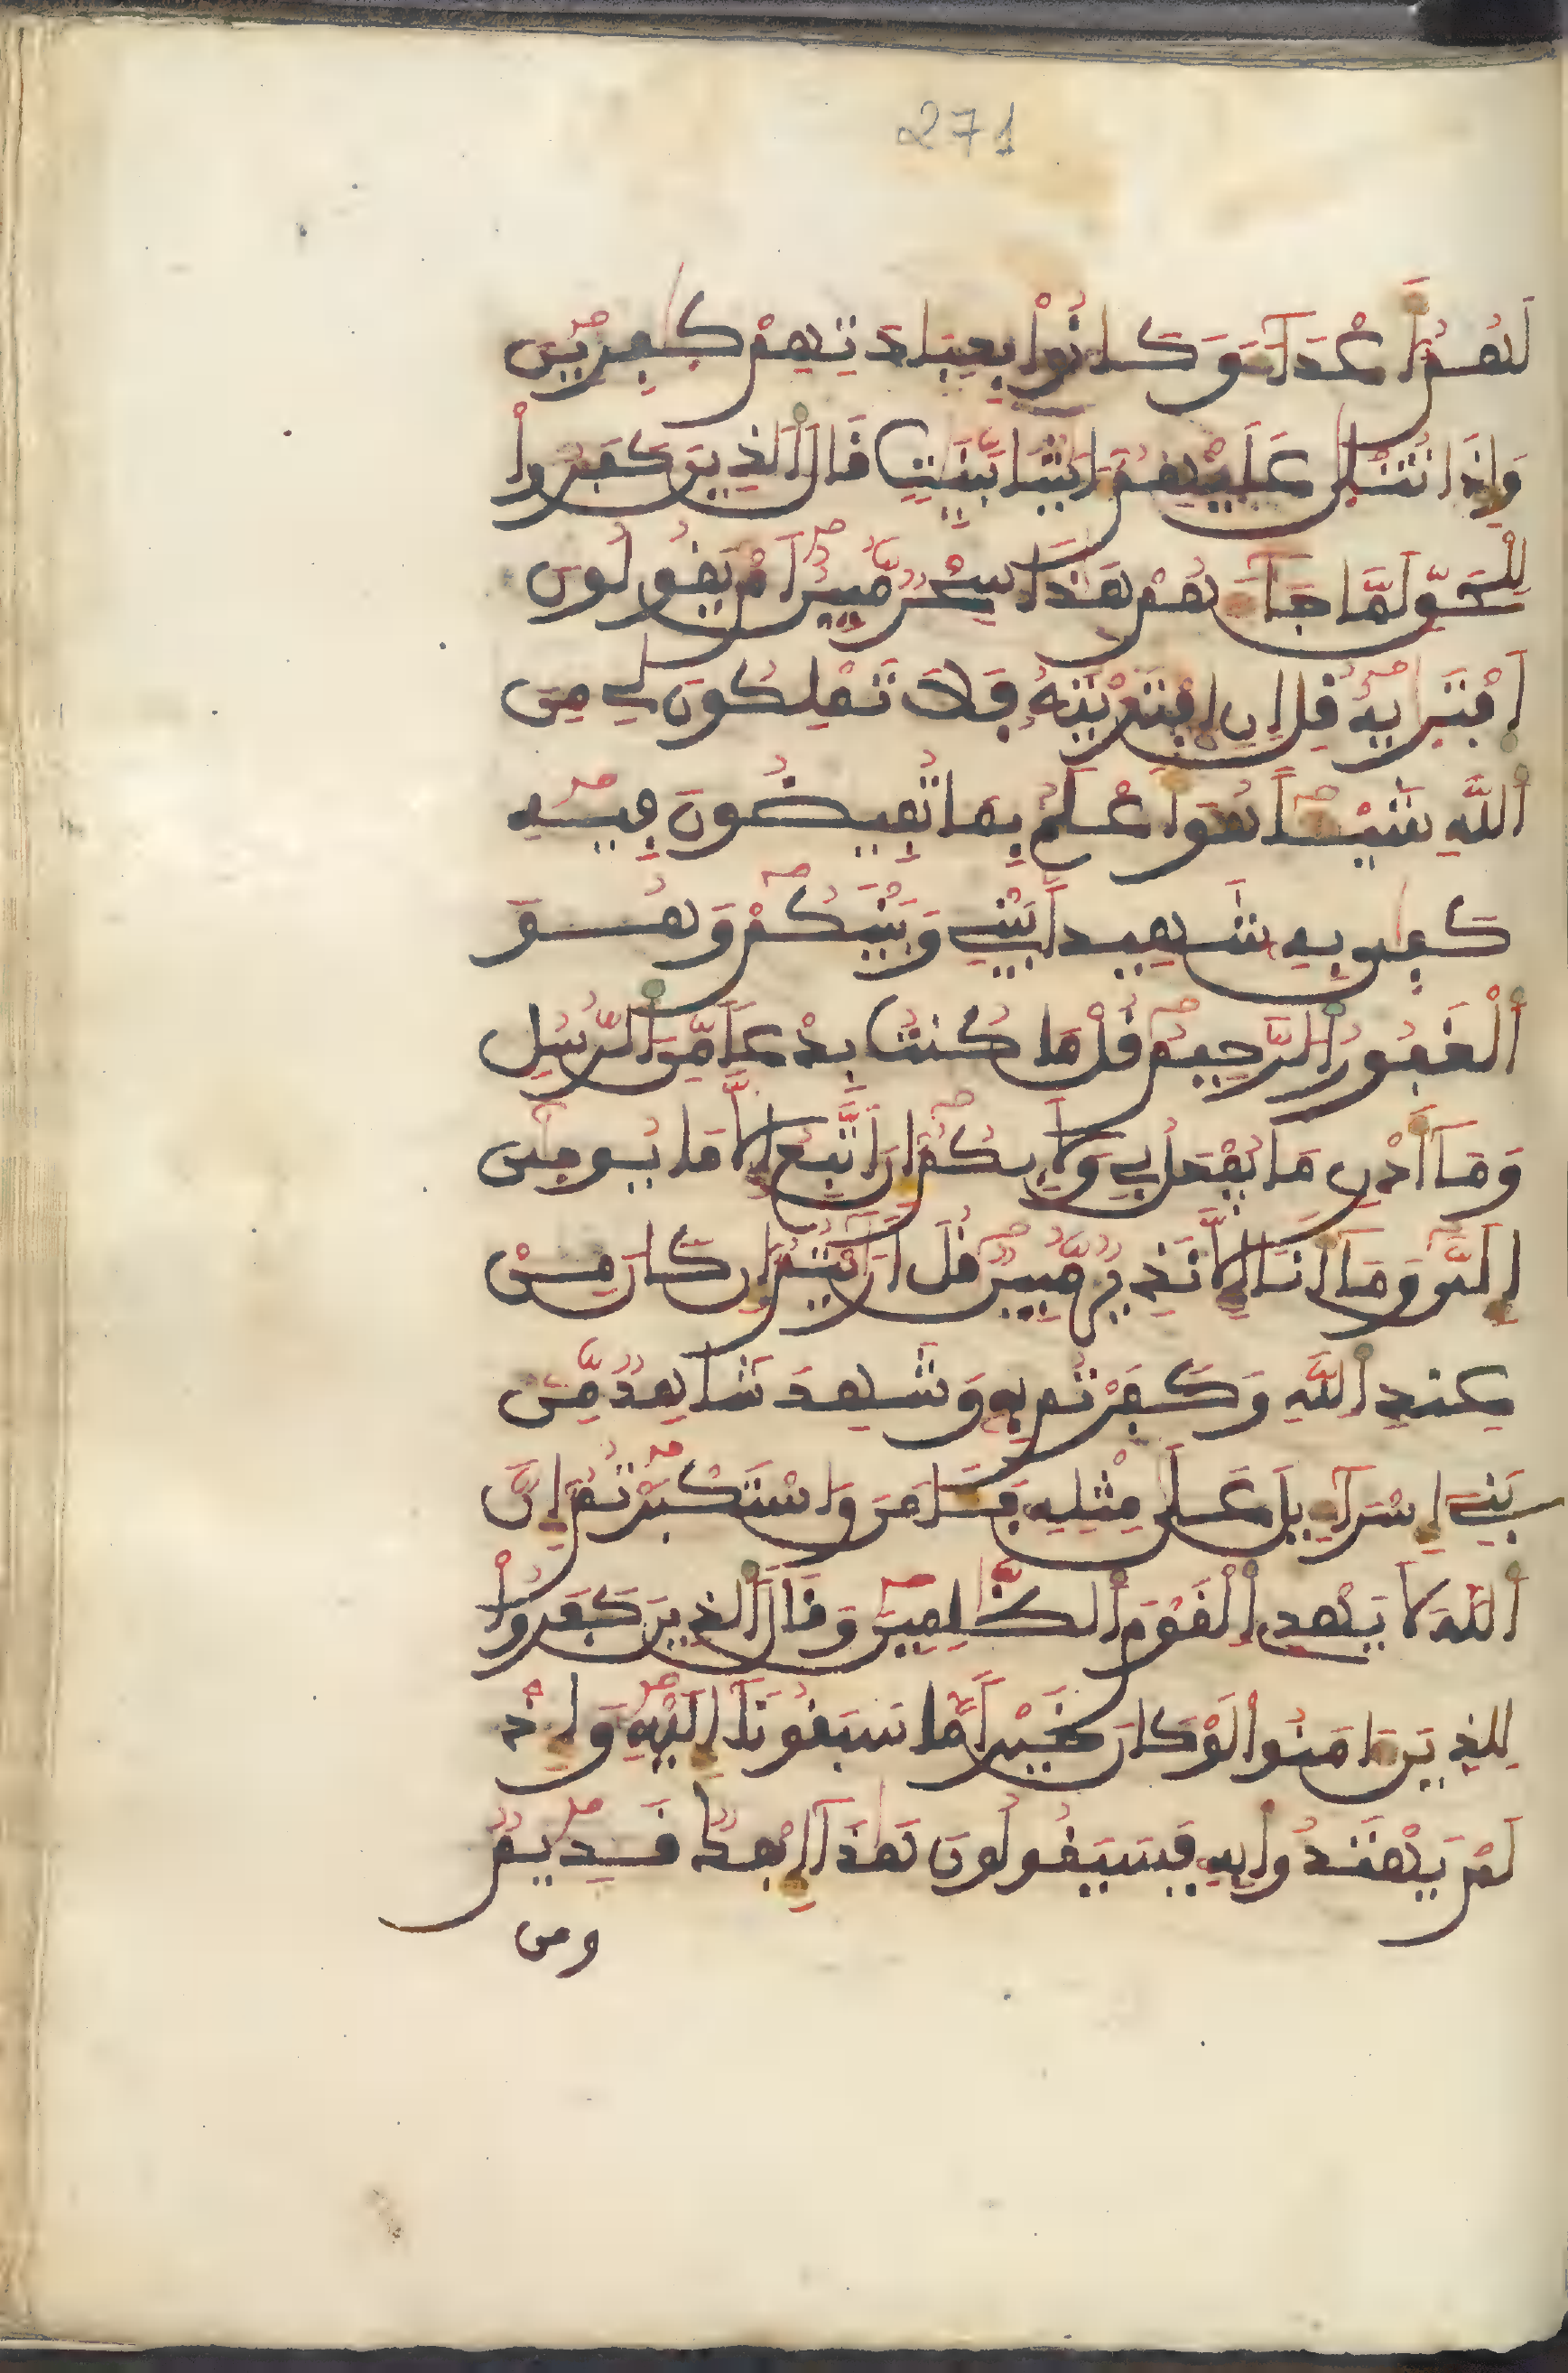 271
لَهُمُۥٓ أَعْدَآءً وَكَانُواْ بِعِبَادَتِهِمْ كَٰفِرِينَ
وَإِذَا تُتْلَىٰ عَلَيْهِمُۥٓ ءَايَٰتُنَا بَيِّنَٰتٍ قَالَ ٱلذِينَ كَفَرُواْ
لِلْحَقِّ لَمَّا جَآءَهُمْ هَٰذَا سِحْرٌ مُّبِينٌ اَمْ يَقُولُونَ
اَفْتَر۪ىٰهُ قُلِ اِنِ اِفْتَرَيْتُهُۥ فَلَا تَمْلِكُونَ لِے مِنَ
ٱللَّهِ شَيْـٔاً هُوَ أَعْلَمُ بِمَا تُفِيضُونَ فِيهِ
كَفَىٰ بِهِۦ شَهِيداَۢ بَيْنِے وَبَيْنَكُمْ وَهُوَ
ٱلْغَفُورُ ٱلرَّحِيمُ قُلْ مَا كُنتُ بِدْعاً مِّنَ ٱلرُّسُلِ
وَمَآ أَدْرِے مَا يُفْعَلُ بِے وَلَا بِكُمُۥٓ إِنَ اَتَّبِعُ إِلَّا مَا يُوحَىٰٓ
إِلَىَّ وَمَآ أَنَا إِلَّا نَذِيرٌ مُّبِينٌ قُلَ اَرَٰيْتُمُۥٓ إِن كَانَ مِنْ
عِندِ ٱللَّهِ وَكَفَرْتُم بِهِۦ وَشَهِدَ شَاهِدٌ مِّنۢ
بَنِےٓ إِسْرَآءِيلَ عَلَىٰ مِثْلِهِۦ فَـَٔامَنَ وَاسْتَكْبَرْتُمُۥٓ إِنَّ
ٱللَّهَ لَا يَهْدِے ٱلْقَوْمَ ٱلظَّٰلِمِينَ وَقَالَ ٱلذِينَ كَفَرُواْ
لِلذِينَ ءَامَنُواْ لَوْ كَانَ خَيْراً مَّا سَبَقُونَآ إِلَيْهِ وَإِذْ
لَمْ يَهْتَدُواْ بِهِۦ فَسَيَقُولُونَ هَٰذَآ إِفْكٌ قَدِيمٌ
ومن